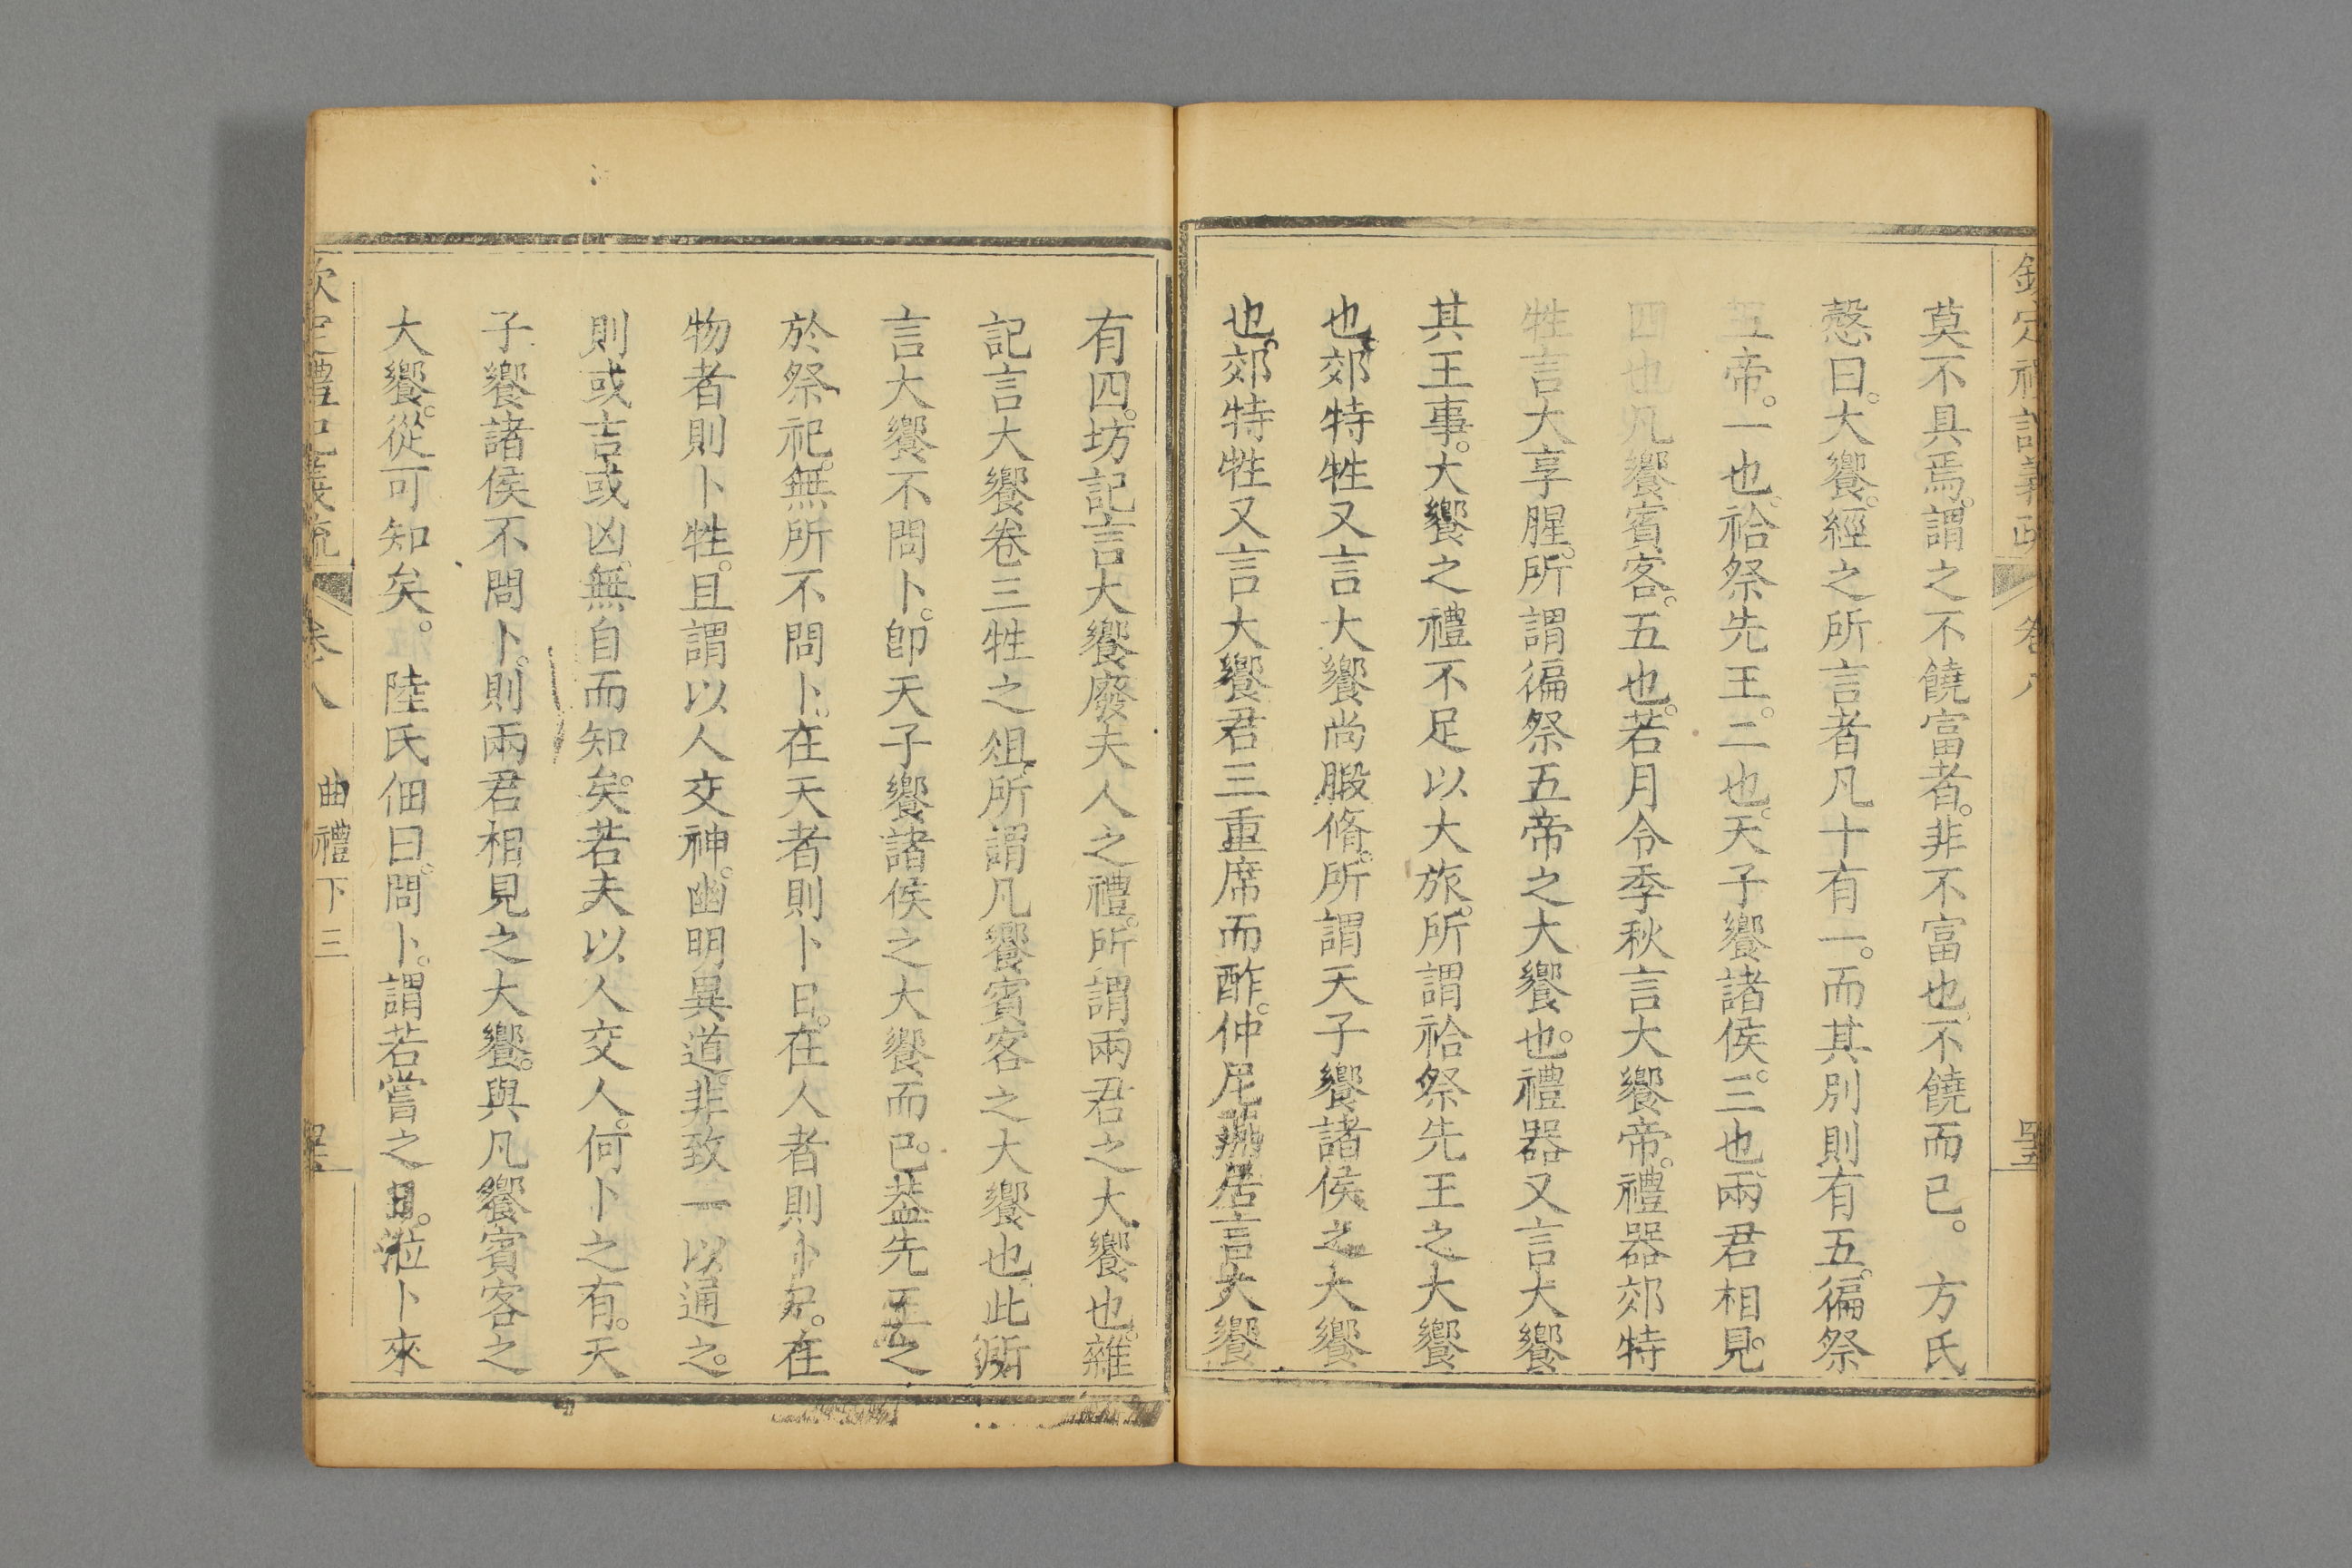 欽定禮記義疏 卷八 罢
莫不具焉。謂之不饒富者。非不富也。不饒而已。 方氏
慤曰。大饗。經之所言者凡十有一。而其別則有五。徧祭
五帝。一也。祫祭先王。二也。天子饗諸侯。三也。兩君相見。
四也。凡饗賓客。五也。若月令季秋言大饗帝。禮器郊特
牲言大享腥。所謂徧祭五帝之大饗也。禮器又言大饗
其王事。大饗之禮不足以大旅。所謂祫祭先王之大饗
也。郊特牲又言大饗尚腶脩。所謂天子饗諸侯之大饗
也。郊特牲又言大饗君三重席而酢。仲尼燕居言大饗
有四。坊記言大饗廢夫人之禮。所謂兩君之大饗也。雜
記言大饗卷三牲之俎。所謂凡饗賓客之大饗也。此所
言大饗不問卜。卽天子饗諸侯之大饗而已。葢先王之
於祭祀。無所不問卜。在天者則卜日。在人者則卜尸。在
物者則卜牲。且謂以人交神。幽明異道。非致一以通之。
則或吉或凶。無自而知矣。若夫以人交人。何卜之有。天
子饗諸侯不問卜。則兩君相見之大饗。與凡饗賓客之
大饗。從可知矣。 陸氏佃曰。問卜。謂若嘗之日。涖卜來
欽定禮記義疏 卷八 曲禮下三